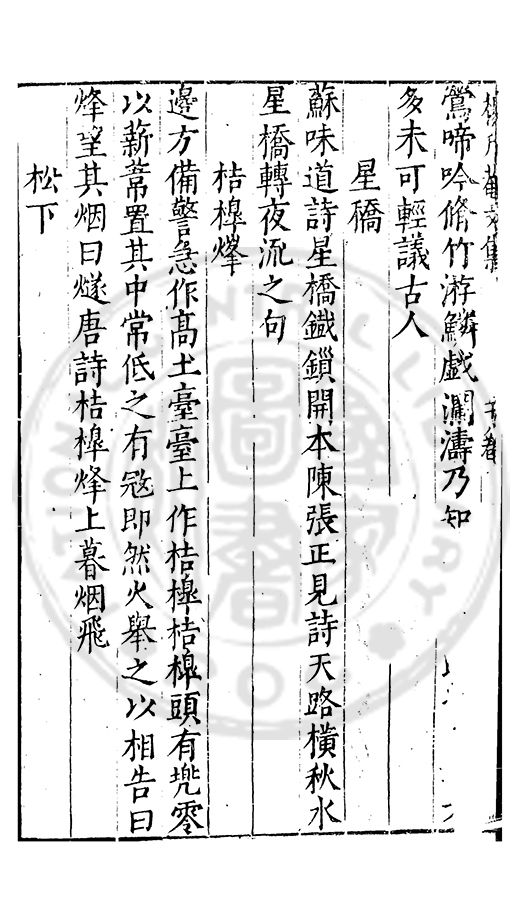 鶯啼吟脩竹游鱗戯瀾濤乃知
多未可輕議古人
星橋
蘇味道詩星橋鐵鎖開本陳張正見詩天路橫秋水
星橋轉夜流之句
桔槹㷭
邊方備警急作高土臺臺上作桔槹桔槹頭有兠零
以薪蒿置其中常低之有宼即然火舉之以相告曰
烽望其烟曰燧唐詩桔槹烽上暮烟飛
松下